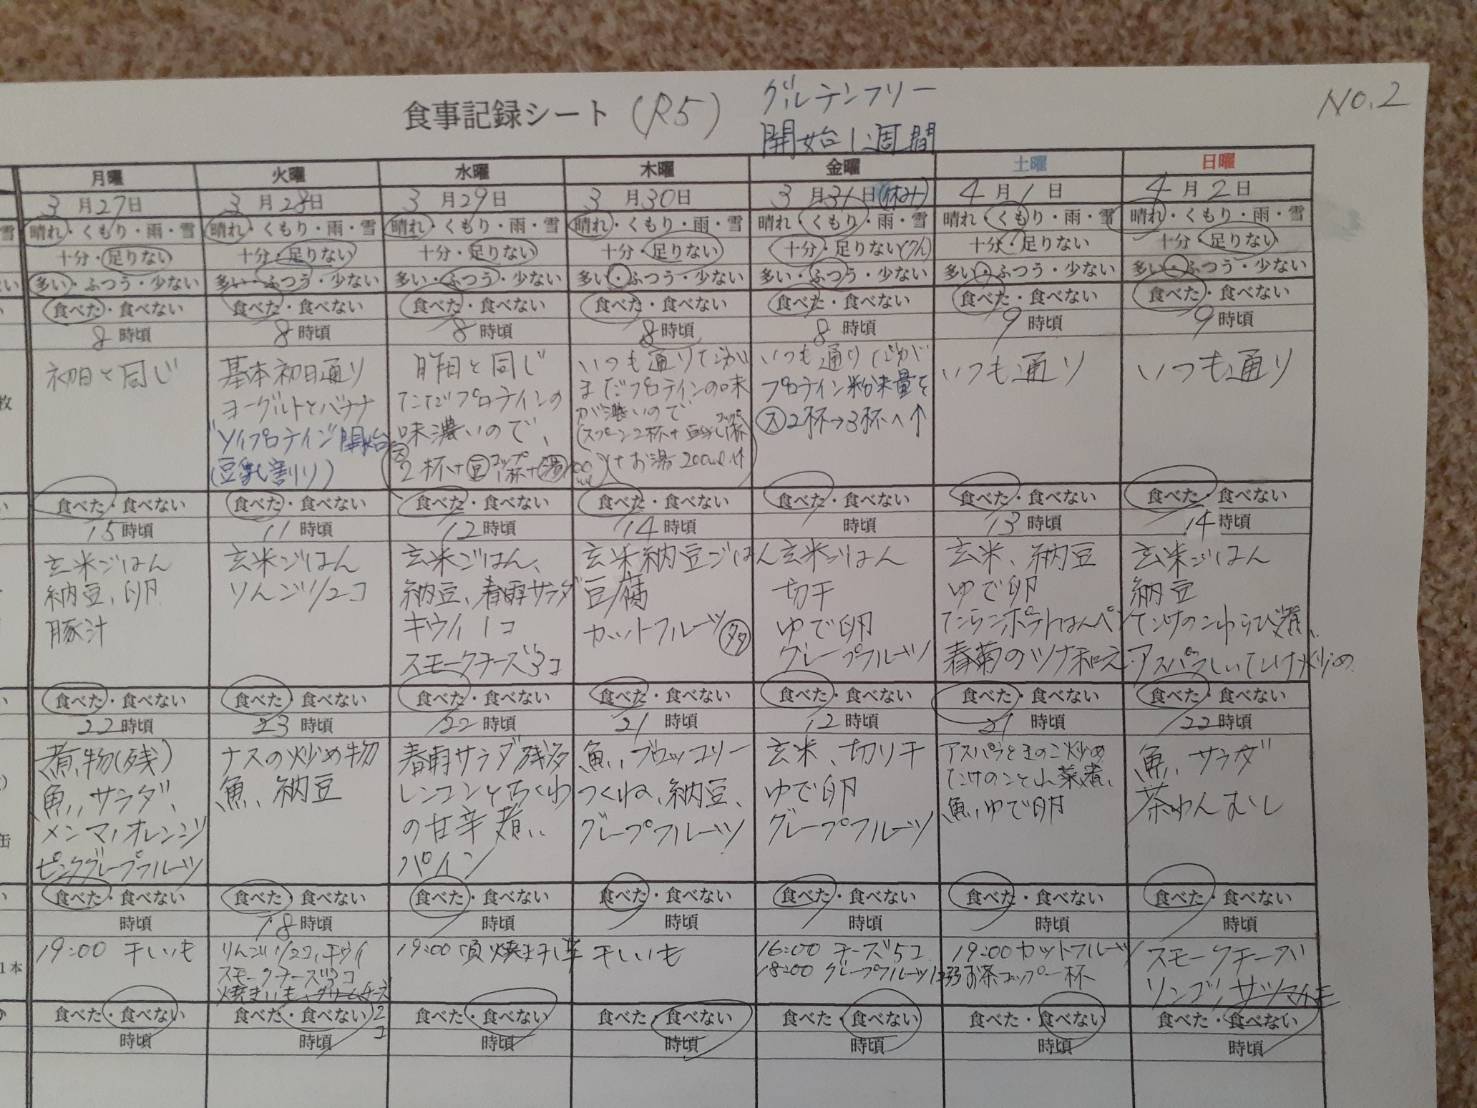 食事記録シート (R5) グルテンフリー NO.2
開始1週間
月曜 火曜 水曜 木曜 金曜 土曜 日曜
3月27日 3月28日 3月29日 3月30日 3月31日(休み) 4月1日 4月2日
雪 晴れ・くもり・雨・雪 晴れ・くもり・雨・雪 晴れ・くもり・雨・雪 晴れ・くもり・雨・雪 晴れ・くもり・雨・雪 晴れ・くもり・雨・雪 晴れ・くもり・雨・雪
十分・足りない 十分・足りない 十分・足りない 十分・足りない 十分・足りない 十分・足りない 十分・足りない
多い・ふつう・少ない 多い・ふつう・少ない 多い・ふつう・少ない 多い・ふつう・少ない 多い・ふつう・少ない 多い・ふつう・少ない 多い・ふつう・少ない
食べた・食べない 食べた・食べない 食べた・食べない 食べた・食べない 食べた・食べない 食べた・食べない 食べた・食べない
8時頃 8時頃 8時頃 8時頃 8時頃 9時頃 9時頃
初日と同じ
基本初日通り
ヨーグルトとバナナ
"ソイプロテイン"開始
(豆乳割り)
昨日と同じ
ただプロテインの
味濃いので、
2杯+豆1杯+湯
いつも通りだが
まだプロテインの味
が濃いので
(スプーン2杯+豆乳1杯
+お湯200ml
いつも通りだが
プロテイン粉末量を
大2杯→3杯へ↑
いつも通り
いつも通り
枚
食べた・食べない 食べた・食べない 食べた・食べない 食べた・食べない 食べた・食べない 食べた・食べない 食べた・食べない
15時頃 11時頃 12時頃 14時頃 時頃 13時頃 14時頃
玄米ごはん
納豆、卵
豚汁
玄米ごはん
りんご1/2コ
玄米ごはん、
納豆、春雨サラダ
キウイ1コ
スモークチーズ3コ
玄米納豆ごはん
豆腐
カットフルーツ
玄米ごはん
切干
ゆで卵
グレープフルーツ
玄米、納豆
ゆで卵
たらこポテトはんぺ
春菊のツナ和え
玄米ごはん
納豆
ケンサのこわらび煮
アスパラしいたけ炒め
食べた・食べない 食べた・食べない 食べた・食べない 食べた・食べない 食べた・食べない 食べた・食べない 食べた・食べない
22時頃 23時頃 22時頃 21時頃 12時頃 21時頃 22時頃
煮物(残)
魚、サラダ、
メンマ、オレンジ
ピンクグレープフルーツ
ナスの炒め物
魚、納豆
春雨サラダ残
レンコンとちくわ
の甘辛煮、
パイン
魚、ブロッコリー
つくね、納豆、
グレープフルーツ
玄米、切り干
ゆで卵
グレープフルーツ
アスパラときのこ炒め
たけのこと山菜煮、
魚、ゆで卵
魚、サラダ
茶わんむし
缶
食べた・食べない 食べた・食べない 食べた・食べない 食べた・食べない 食べた・食べない 食べた・食べない 食べた・食べない
時頃 18時頃 時頃 時頃 時頃 時頃 時頃
1本
19:00 干しいも
りんご1/2コ、キウイ
スモークチーズ3コ
焼きいも、クリームチーズ
2コ
19:00頃 焼き干し芋
干しいも
16:00 チーズ5コ
18:00 グレープフルーツ
19:00カットフルーツ
お茶コップ一杯
スモークチーズ
リンゴ、サツマイモ
食べた・食べない 食べた・食べない 食べた・食べない 食べた・食べない 食べた・食べない 食べた・食べない 食べた・食べない
時頃 時頃 時頃 時頃 時頃 時頃 時頃